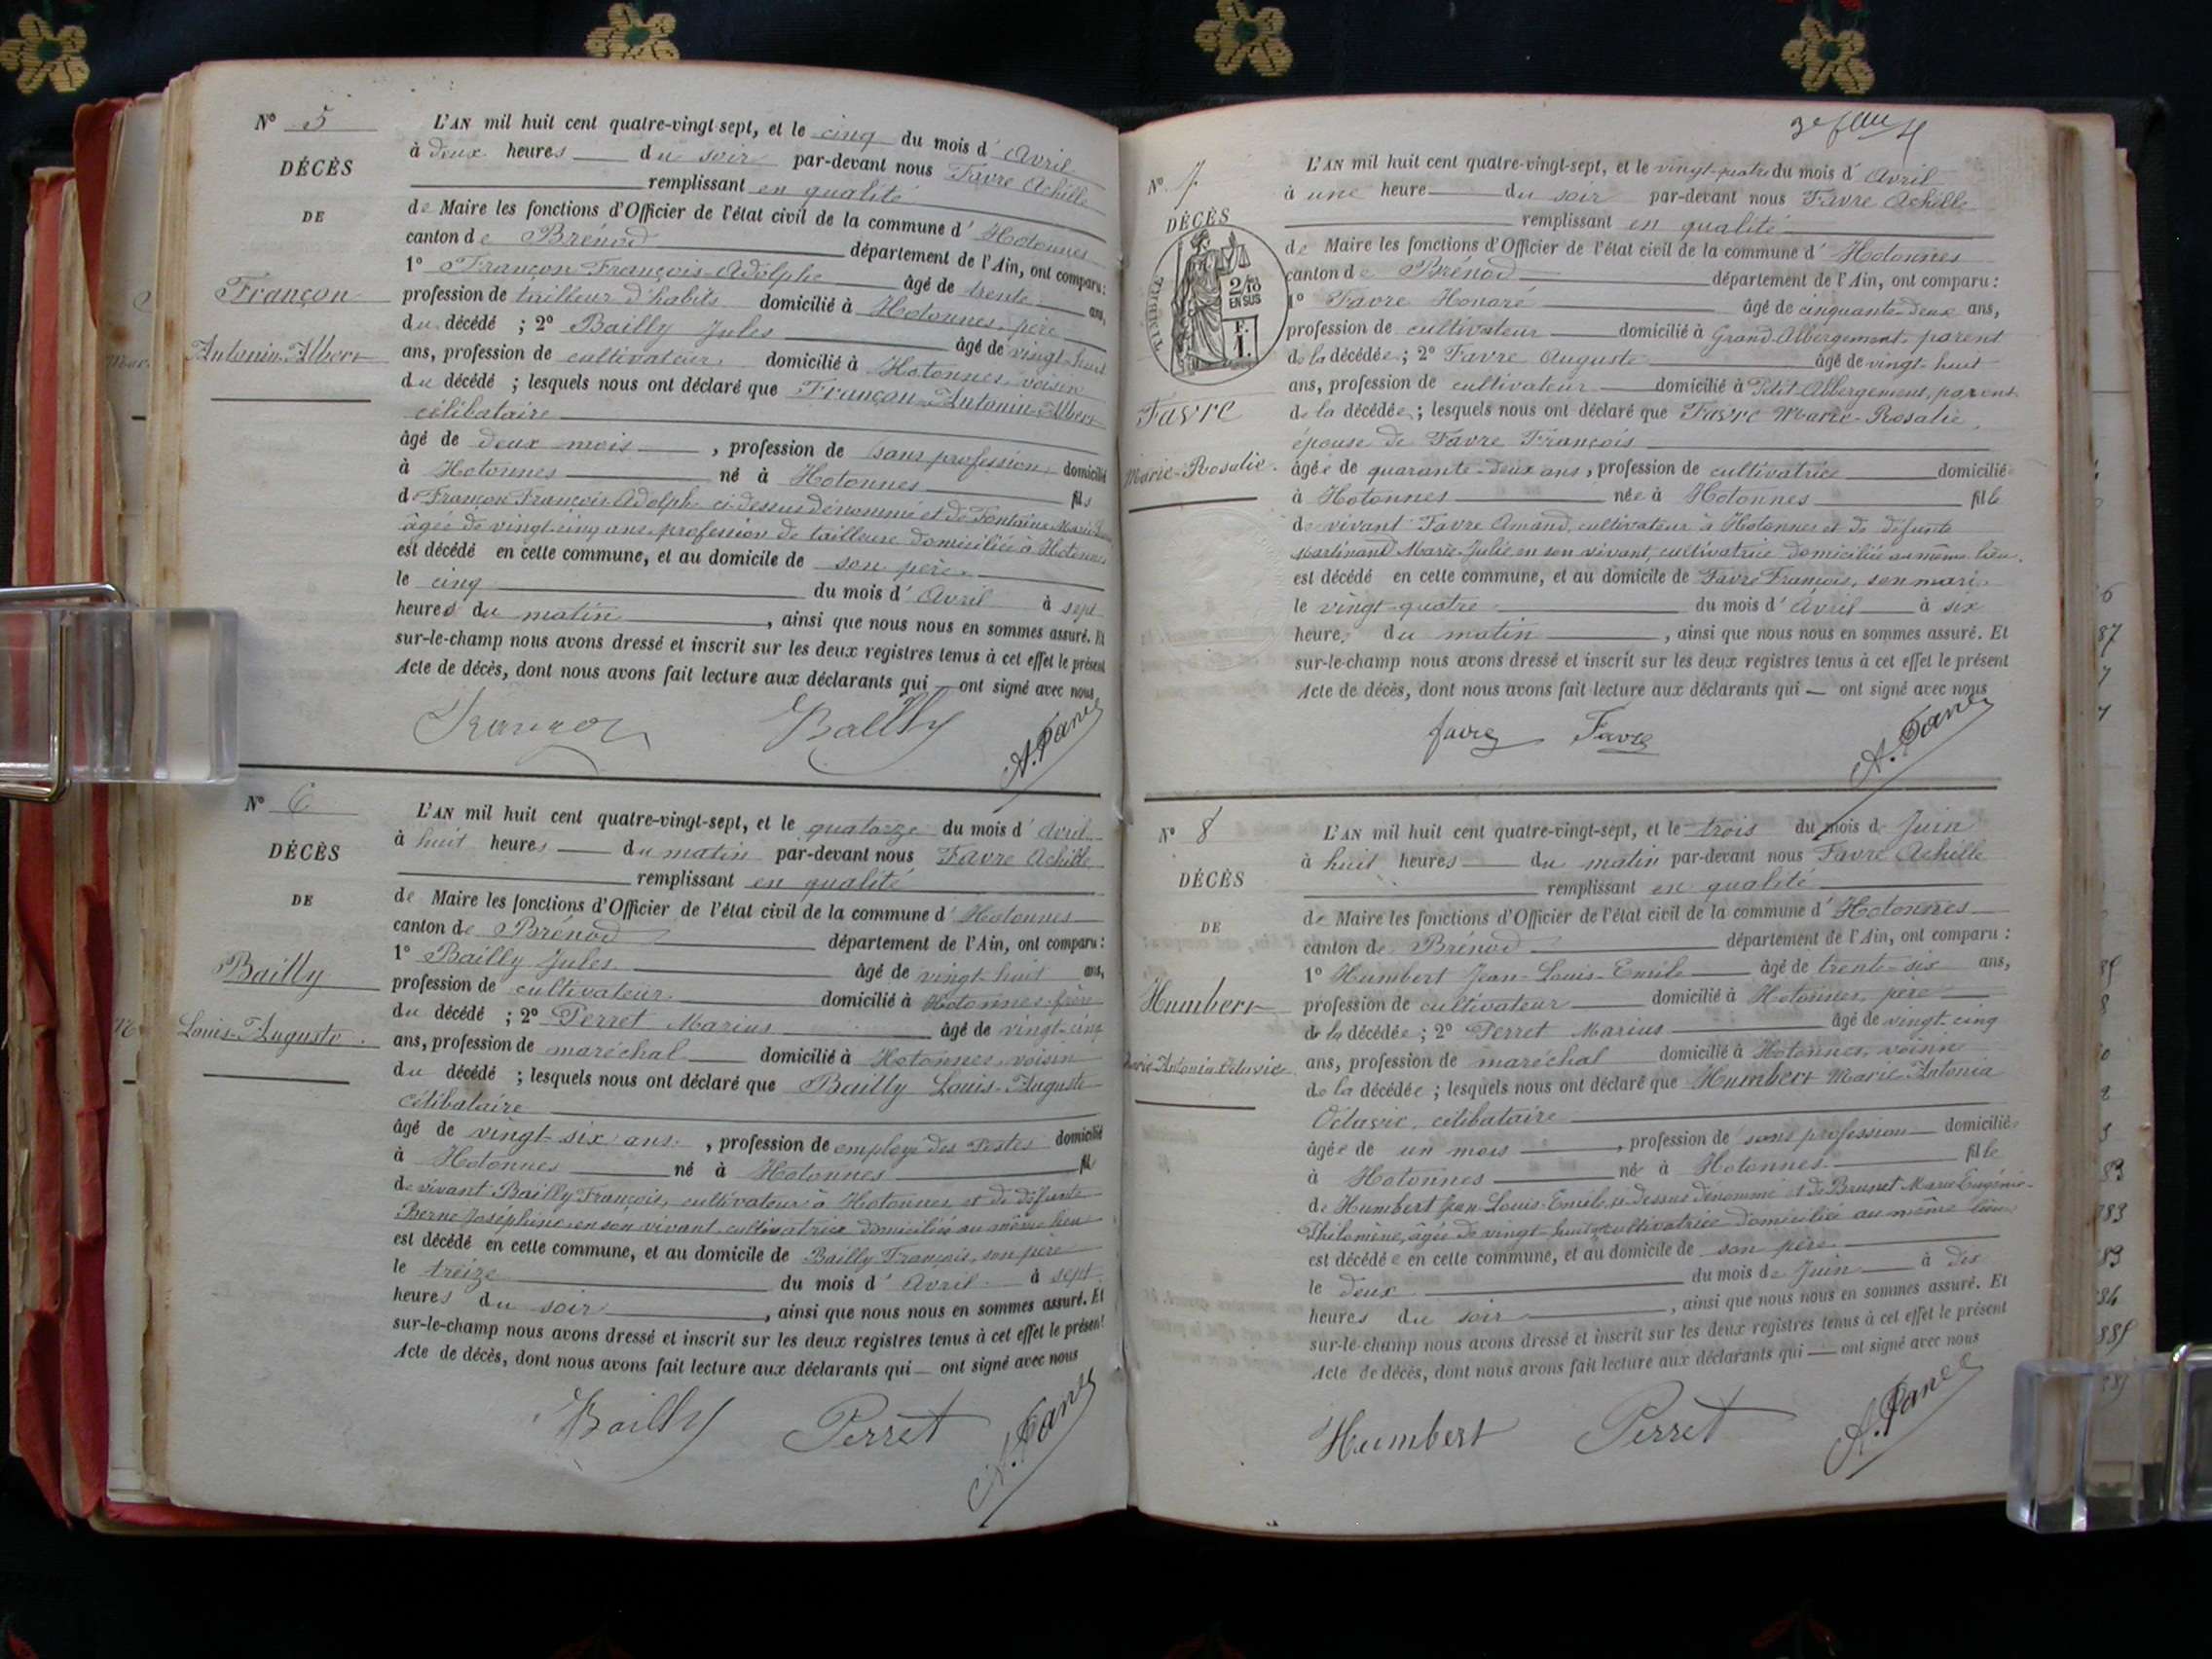 N° 5
DÉCÈS
DE
Françon
Antonin-Albert
L'AN mil huit cent quatre-vingt-sept, et le cinq du mois d'Avril
à deux heures du soir par-devant nous Favre Achille
remplissant en qualité
de Maire les fonctions d'Officier de l'état civil de la commune d'Hotonnes
canton de Brénod département de l'Ain, ont comparu :
1° Françon François-Adolphe âgé de trente ans,
profession de tailleur d'habits domicilié à Hotonnes, père
du décédé ; 2° Bailly Jules âgé de vingt-huit
ans, profession de cultivateur domicilié à Hotonnes, voisin
du décédé ; lesquels nous ont déclaré que Françon Antonin-Albert
célibataire
âgé de deux mois , profession de sans profession domicilié
à Hotonnes né à Hotonnes fils
de Françon François-Adolphe ci-dessus dénommé et de Fontaine Marie
âgée de vingt-cinq ans, profession de tailleuse domiciliée à Hotonnes
est décédé en cette commune, et au domicile de son père
le cinq du mois d'Avril à sept
heures du matin , ainsi que nous nous en sommes assuré. Et
sur-le-champ nous avons dressé et inscrit sur les deux registres tenus à cet effet le présent
Acte de décès, dont nous avons fait lecture aux déclarants qui ont signé avec nous
Françon Bailly A. Favre
N° 6
DÉCÈS
DE
Bailly
Louis-Auguste
L'AN mil huit cent quatre-vingt-sept, et le quatorze du mois d'Avril
à huit heures du matin par-devant nous Favre Achille
remplissant en qualité
de Maire les fonctions d'Officier de l'état civil de la commune d'Hotonnes
canton de Brénod département de l'Ain, ont comparu :
1° Bailly Jules âgé de vingt-huit ans,
profession de cultivateur domicilié à Hotonnes, frère
du décédé ; 2° Perret Marius âgé de vingt-cinq
ans, profession de maréchal domicilié à Hotonnes, voisin
du décédé ; lesquels nous ont déclaré que Bailly Louis-Auguste
célibataire
âgé de vingt-six ans , profession de employé des Postes domicilié
à Hotonnes né à Hotonnes fils
de vivant Bailly François, cultivateur à Hotonnes et de défunte
Berne Joséphine en son vivant cultivatrice domiciliée au même lieu
est décédé en cette commune, et au domicile de Bailly François, son père
le treize du mois d'Avril à sept
heures du soir , ainsi que nous nous en sommes assuré. Et
sur-le-champ nous avons dressé et inscrit sur les deux registres tenus à cet effet le présent
Acte de décès, dont nous avons fait lecture aux déclarants qui ont signé avec nous
Bailly Perret A. Favre
N° 7
DÉCÈS
TIMBRE
2/10
EN SUS
F.
1.
Favre
Marie-Rosalie.
L'AN mil huit cent quatre-vingt-sept, et le vingt-quatre du mois d'Avril
à une heure du soir par-devant nous Favre Achille
remplissant en qualité
de Maire les fonctions d'Officier de l'état civil de la commune d'Hotonnes
canton de Brénod département de l'Ain, ont comparu :
1° Favre Honoré âgé de cinquante-deux ans,
profession de cultivateur domicilié à Grand-Abergement, parent
de la décédée ; 2° Favre Auguste âgé de vingt-huit
ans, profession de cultivateur domicilié à Petit-Abergement, parent
de la décédée ; lesquels nous ont déclaré que Favre Marie-Rosalie,
épouse de Favre François
âgée de quarante-deux ans, profession de cultivatrice domiciliée
à Hotonnes née à Hotonnes fille
de vivant Favre Amand, cultivateur à Hotonnes et de défunte
Martinand Marie-Julie en son vivant, cultivatrice domiciliée au même lieu.
est décédé en cette commune, et au domicile de Favre François, son mari
le vingt-quatre du mois d'Avril à six
heures du matin , ainsi que nous nous en sommes assuré. Et
sur-le-champ nous avons dressé et inscrit sur les deux registres tenus à cet effet le présent
Acte de décès, dont nous avons fait lecture aux déclarants qui ont signé avec nous
favre Favre A. Favre
N° 8
DÉCÈS
DE
Humbert
Marie-Antonia-Octavie
L'AN mil huit cent quatre-vingt-sept, et le trois du mois de Juin
à huit heures du matin par-devant nous Favre Achille
remplissant en qualité
de Maire les fonctions d'Officier de l'état civil de la commune d'Hotonnes
canton de Brénod département de l'Ain, ont comparu :
1° Humbert Jean-Louis-Emile âgé de trente-six ans,
profession de cultivateur domicilié à Hotonnes, père
de la décédée ; 2° Perret Marius âgé de vingt-cinq
ans, profession de maréchal domicilié à Hotonnes, voisin
de la décédée ; lesquels nous ont déclaré que Humbert Marie-Antonia
Octavie, célibataire
âgée de un mois , profession de sans profession domiciliée
à Hotonnes née à Hotonnes fille
de Humbert Jean-Louis-Emile, ci-dessus dénommé et de Brunet Marie-Eugénie-
Philomène, âgée de vingt-huit cultivatrice domiciliée au même lieu
est décédée en cette commune, et au domicile de son père
le deux du mois de Juin à dix
heures du soir , ainsi que nous nous en sommes assuré. Et
sur-le-champ nous avons dressé et inscrit sur les deux registres tenus à cet effet le présent
Acte de décès, dont nous avons fait lecture aux déclarants qui ont signé avec nous
Humbert Perret A. Favre